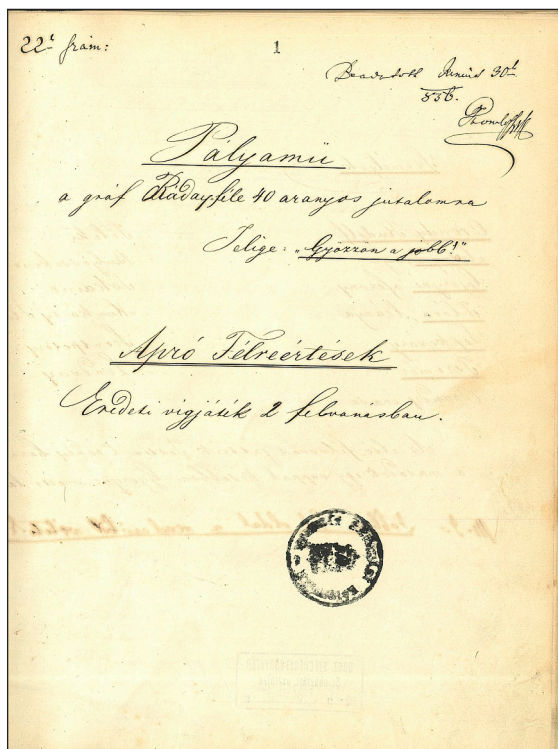 22ᵗ szám:
1
Beadatott Június 30ᵗ
856.
Pályamü
a gróf Ráday féle 40 aranyos jutalomra
Jelige: "Győzzön a jobb!"
Apró Félreértések
Eredeti vigjáték 2 felvonásban.